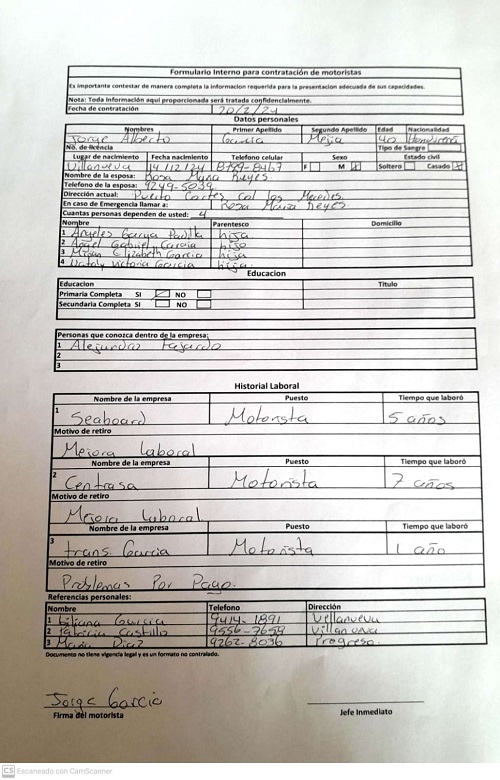 Formulario Interno para contratación de motoristas
Es importante contestar de manera completa la informacion requerida para la presentacion adecuada de sus capacidades.
Nota: Toda Información aqui proporcionada será tratada confidencialmente.
Fecha de contratación 20/2/24
Datos personales
Nombres Primer Apellido Segundo Apellido Edad Nacionalidad
Jorge Alberto Garcia Mejia 40 Hondureña
No. de licencia Tipo de Sangre
Lugar de nacimiento Fecha nacimiento Telefono celular Sexo Estado civil
Villanueva 14/12/24 8799-8467 F M Soltero Casado
Nombre de la esposa: Rosa Maria Reyes
Telefono de la esposa: 9249-5039
Dirección actual: Puerto Cortes Col los Mercedes
En caso de Emergencia llamar a: Rosa Maria Reyes
Cuantas personas dependen de usted: 4
Nombre Parentesco Domicilio
1 Angeles Padilla hija
2 Angel Gabriel Garcia hijo
3 Elizabeth Garcia hija
4 Victoria Garcia hija
Educacion
Educacion Titulo
Primaria Completa SI NO
Secundaria Completa SI NO
Personas que conozca dentro de la empresa:
1 Alejandro Fajardo
2
3
Historial Laboral
Nombre de la empresa Puesto Tiempo que laboró
1 Seaboard Motorista 5 años
Motivo de retiro
Mejora Laboral
Nombre de la empresa Puesto Tiempo que laboró
2 Centrasa Motorista 7 años
Motivo de retiro
Mejora Laboral
Nombre de la empresa Puesto Tiempo que laboró
3 trans. Garcia Motorista 1 año
Motivo de retiro
Problemas Por Pago.
Referencias personales:
Nombre Telefono Dirección
1 Liliana Garcia 9414-1891 Villanueva
2 Patricia Castillo 9556-7659 Villanueva
3 Maria Diaz 9262-8036 Progreso.
Documento no tiene vigencia legal y es un formato no controlado.
Jorge Garcia
Firma del motorista Jefe Inmediato
CS Escaneado con CamScanner